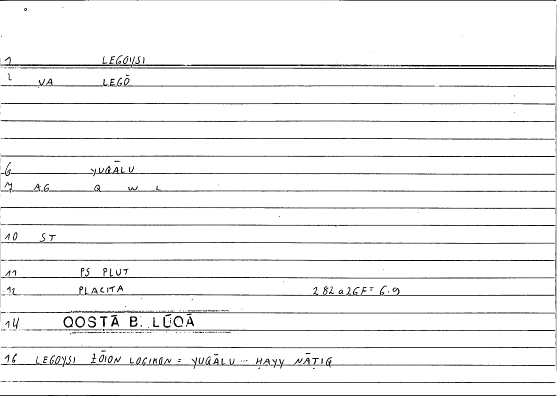 1 LEGOYSI
2 VA LEGŌ
6 YUQĀLU
7 AG Q W L
10 ST
11 PS PLUT
12 PLACITA 282a26F = 6.9
14 QOSṬĀ B. LŪQĀ
16 LEGOYSI ZŌION LOGIMON = YUQĀLU --- ḤAYY NĀṬIQ